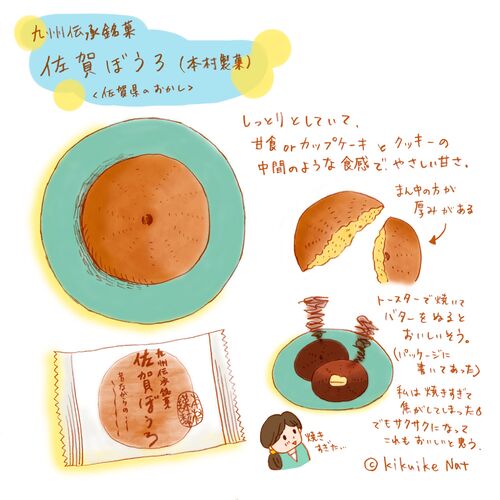 九州伝承銘菓
佐賀ぼうろ(本村製菓)
<佐賀県のおかし>
しっとりとしていて、
甘食orカップケーキとクッキーの
中間のような食感で、やさしい甘さ。
まん中の方が
厚みがある
トースターで焼いて
バターをぬると
おいしいそう。
(パッケージに
書いてあった)
私は焼きすぎて
焦がしてしまった
でもサクサクになって
これもおいしいと思う。
焼き
すぎた…
九州伝承銘菓
佐賀ぼうろ
昔ながらの
© kikuike Nat